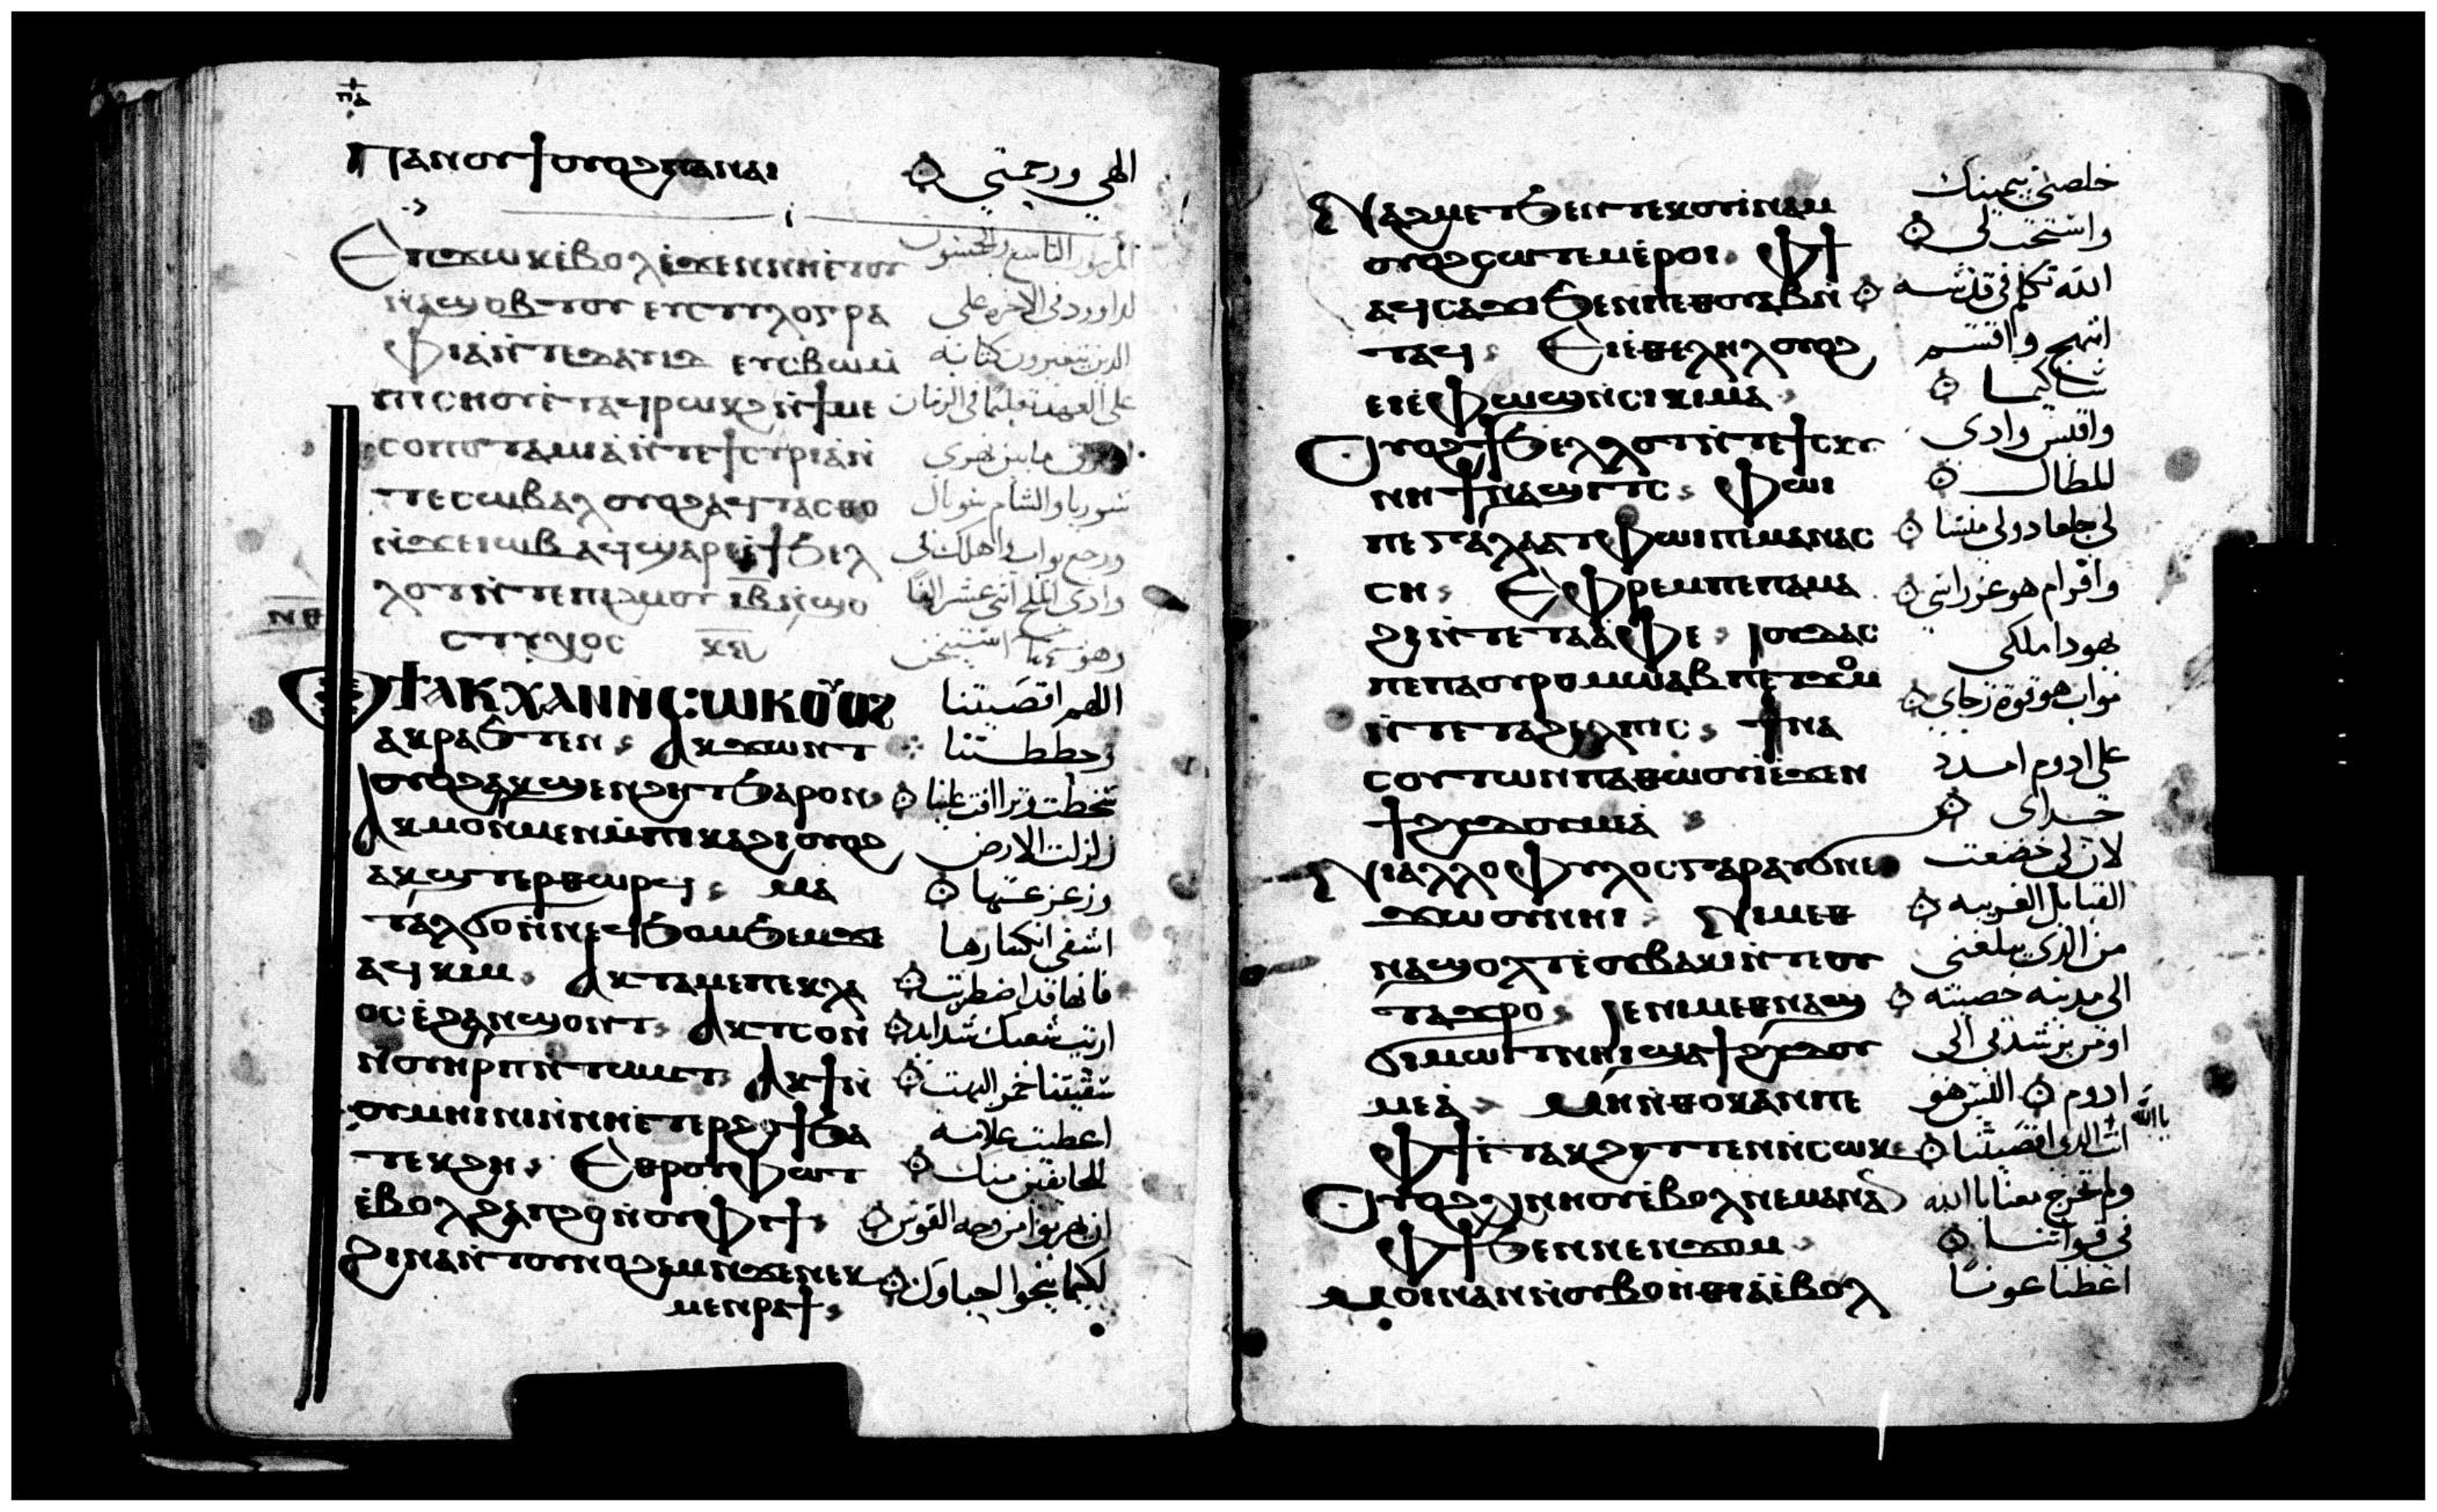 ⲡⲁ
Ⲡⲁⲛⲟⲩϯ ⲟⲩⲟϩ ⲡⲁⲛⲁⲓ
الهي ورحمتي
Ⲉⲡϫⲱⲕ ⲉ̀ⲃⲟⲗ ⲉ̀ϫⲉⲛ ⲛⲏⲉ̀ⲧⲟⲩ
المزمور التاسع والخمسون
ⲛⲁϣⲟⲃⲧⲟⲩ ⲉⲩⲥⲧⲩⲗⲟⲅⲣⲁ
لداوود في الاخره على
ⲫⲓⲁ̀ ⲛ̀ⲧⲉ ⲇⲁⲩⲓⲇ ⲉⲩⲥⲃⲱ ⲙ̀
الذين يتغيرون كتابة
ⲡⲓⲥⲏⲟⲩ ⲉ̀ⲧⲁϥⲣⲱⲕϩ ⲛ̀ϯⲙⲉ
ⲥⲟⲡⲟⲧⲁⲙⲓⲁ̀ ⲛ̀ⲧⲉ ϯⲥⲩⲣⲓⲁ ⲛ
ⲧⲉ ⲥⲱⲃⲁⲗ ⲟⲩⲟϩ ⲁϥⲧⲁⲥⲑⲟ
سوريا والشام سوبال
ⲛ̀ϫⲉ ⲓⲱⲃ ⲁϥϣⲁⲣⲓ ⲉ̀ϯϧⲉⲗ
ورجع يواب واهلك في
ⲗⲟⲧ ⲛ̀ⲧⲉ ⲡⲓϩⲙⲟⲩ ⲓⲃ ⲛ̀ϣⲟ
وادي الملح اثنى عشر الفا
ⲛⲑ
ⲥⲧⲩⲭⲟⲥ
Ⲫϯ ⲁⲕⲭⲁⲛⲛ ⲥⲱⲕ ⲟⲩⲟϩ
اللهم اقصيتنا
ⲁⲕⲣⲁϧⲧⲉⲛ Ⲁⲕϫⲱⲛⲧ
وحططتنا
ⲟⲩⲟϩ ⲁⲕϣⲉⲛϩⲏⲧ ϧⲁⲣⲟⲛ
سخطت وتراافت علينا
Ⲁⲕⲙⲟⲛⲙⲉⲛ ⲙ̀ⲡⲓⲕⲁϩⲓ ⲟⲩⲟϩ
زلزلت الارض
ⲁⲕϣⲧⲉⲣⲑⲱⲣϥ ⲙⲁ
وزعزعتها
ⲧⲁⲗϭⲟ ⲛ̀ⲛⲉϥϧⲟⲙϧⲉⲙ ϫⲉ
اشفى انكسارها
ⲁϥⲕⲓⲙ Ⲁⲕⲧⲁⲙⲉ ⲡⲉⲕⲗⲁ
فانها قد اضطربت
ⲟⲥ ⲉ̀ϩⲁⲛϣⲟⲛⲧ Ⲁⲕⲧⲥⲟⲛ
اريت شعبك شدايد
ⲛ̀ⲟⲩⲏⲣⲡ ⲛ̀ⲧⲱⲙⲧ Ⲁⲕϯ ⲛ̀
سقيتنا خمر البهت
ⲟⲩⲙⲏⲓⲛⲓ ⲛ̀ⲛⲏⲉⲧⲉⲣϩⲟϯ ϧⲁ
اعطيت علامه
ⲧⲉⲕϩⲏ Ⲉⲑⲣⲟⲩⲫⲱⲧ
للخايفين منك
ⲉ̀ⲃⲟⲗ ϩⲁⲡϩⲟ ⲛ̀ⲟⲩⲫⲓϯ
ان يهربوا من وجه القوس
Ϩⲓⲛⲁ ⲛ̀ⲧⲟⲩⲛⲟϩⲉⲙ ⲛ̀ϫⲉ ⲛⲉⲕ
لكيما ينجوا احباوك
ⲙⲉⲛⲣⲁϯ
Ⲛⲁϩⲙⲉⲧ ϧⲉⲛ ⲧⲉⲕⲟⲩⲓ̀ⲛⲁⲙ
خلصني بيمينك
ⲟⲩⲟϩ ⲥⲱⲧⲉⲙ ⲉ̀ⲣⲟⲓ Ⲫϯ
واستجب لي
ⲁϥⲥⲁϫⲓ ϧⲉⲛ ⲡⲉⲑⲟⲩⲁⲃ ⲛ̀
الله تكلم في قدسه
ⲧⲁϥ Ⲉⲓⲉ̀ⲑⲉⲗⲏⲗ ⲟⲩⲟϩ
ابتهج واقسم
ⲉⲓⲉ̀ⲫⲱϣ ⲛ̀ⲥⲓⲕⲓⲙⲁ
Ⲟⲩⲟϩ ϯϧⲉⲗⲗⲟⲧ ⲛ̀ⲧⲉ ϯⲥⲕⲩ
واقيس وادي
ⲛⲏ ϯⲛⲁϣⲓⲧⲥ Ⲫⲱⲓ
للمظال
ⲡⲉ ⲅⲁⲗⲁⲁⲇ ⲫⲱⲓ ⲡⲉ ⲙⲁⲛⲁⲥ
لي جلعاد ولي منسا
ⲥⲏ Ⲉⲫⲣⲉⲙ ⲡⲉ ⲡⲁⲙⲁ
ϩⲓ ⲛ̀ⲧⲉ ⲧⲁⲁ̀ⲫⲉ Ⲓⲟⲩⲇⲁⲥ
يهودا ملكي
ⲡⲉ ⲡⲁⲟⲩⲣⲟ ⲙⲱⲁⲃ ⲡⲉ ⲧϫⲟⲙ
مواب هو قوة رجاي
ⲛ̀ⲧⲉ ⲧⲁϩⲉⲗⲡⲓⲥ ϯⲛⲁ
ⲥⲟⲩⲧⲱⲛ ⲡⲁⲑⲱⲟⲩⲓ ⲉ̀ϫⲉⲛ
على ادوم امدد
ϯϩⲩⲇⲟⲩⲙⲉⲁ̀
حداي
Ⲛⲓⲁⲗⲗⲟⲫⲩⲗⲟⲥ ⲅⲁⲣ ⲁⲩϭⲛⲉ
لان لي خضعت
ϫⲱⲟⲩ ⲛⲏⲓ Ⲛⲓⲙ ⲉⲑ
القبايل الغريبه
ⲛⲁϣⲟⲗⲧ ⲉ̀ⲟⲩⲃⲁⲕⲓ ⲛ̀ⲧⲉ ⲟⲩ
من الذي يبلغني
ⲧⲁϫⲣⲟ Ⲓⲉ ⲛⲓⲙ ⲉⲑⲛⲁϣ
الى مدينه حصينه
ϭⲓⲙⲱⲓⲧ ⲛⲏⲓ ϣⲁ ϯϩⲩⲇⲟⲩ
اومن يرشدني الى
ⲙⲉⲁ̀ Ⲙⲏ ⲛ̀ⲑⲟⲕ ⲁⲛ ⲡⲉ
ادوم اليس هو
Ⲫϯ ⲉ̀ⲧⲁⲕϩⲓⲧⲧⲉⲛ ⲛ̀ⲥⲱⲕ
انت الذي اقصيتنا
يا الله
Ⲟⲩⲟϩ ⲭⲛⲏⲟⲩ ⲉ̀ⲃⲟⲗ ⲛⲉⲙⲁⲛ ⲁⲛ
ولم تخرج معنا يا الله
Ⲫϯ ϧⲉⲛ ⲛⲉⲛϫⲟⲙ
في قواتنا
Ⲙⲟⲓ ⲛⲁⲛ ⲛ̀ⲟⲩⲃⲟⲏ̀ⲑⲓⲁ ⲉ̀ⲃⲟⲗ
اعطينا عونا